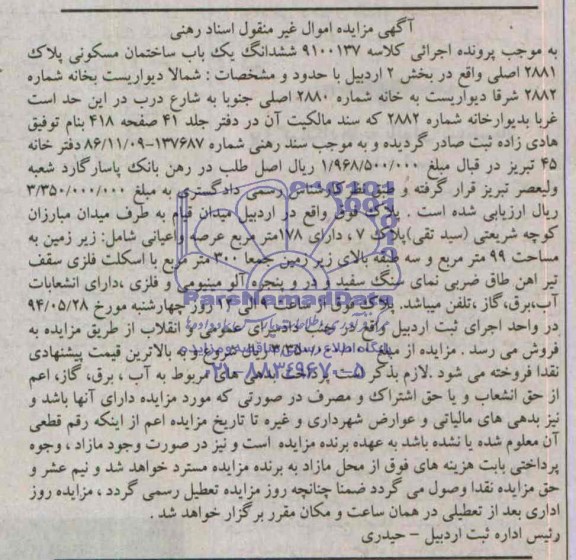 آگهی مزایده اموال غیر منقول اسناد رهنی
به موجب پرونده اجرائی کلاسه ۹۱۰۰۱۳۷ ششدانگ یک باب ساختمان مسکونی پلاک
۲۸۸۱ اصلی واقع در بخش ۲ اردبیل با حدود و مشخصات : شمالا دیواریست بخانه شماره
۲۸۸۲ شرقا دیواریست به خانه شماره ۲۸۸۰ اصلی جنوبا به شارع درب در این حد است
غربا بدیوارخانه شماره ۲۸۸۲ که سند مالکیت آن در دفتر جلد ۴۱ صفحه ۴۱۸ بنام توفیق
هادی زاده ثبت صادر گردیده و به موجب سند رهنی شماره ۱۳۷۶۸۷-۸۶/۱۱/۰۹ دفتر خانه
۴۵ تبریز در قبال مبلغ ۱/۹۶۸/۵۰۰/۰۰۰ ریال اصل طلب در رهن بانک پاسارگارد شعبه
ولیعصر تبریز قرار گرفته و طبق نظر کارشناس رسمی دادگستری به مبلغ ۳/۳۵۰/۰۰۰/۰۰۰
ریال ارزیابی شده است . پلاک فوق واقع در اردبیل میدان قیام به طرف میدان مبارزان
کوچه شریعتی (سید تقی)پلاک ۷ ، دارای ۱۷۸متر مربع عرصه واعیانی شامل: زیر زمین به
مساحت ۹۹ متر مربع و سه طبقه بالای زیر زمین جمعا ۳۰۰ متر مربع با اسکلت فلزی سقف
تیر اهن طاق ضربی نمای سنگ سفید و در و پنجره آلو مینیومی و فلزی ،دارای انشعابات
آب،برق،گاز ،تلفن میباشد. پلاک فوق از ساعت ۹ الی ۱۲ روز چهارشنبه مورخ ۹۴/۰۵/۲۸
در واحد اجرای ثبت اردبیل واقع در پشت دادسرای عمومی و انقلاب از طریق مزایده به
فروش می رسد . مزایده از مبلغ ریال شروع و به بالاترین قیمت پیشنهادی
نقدا فروخته می شود .لازم بذکر است پرداخت بدهی های مربوط به آب ، برق، گاز، اعم
از حق انشعاب و یا حق اشتراک و مصرف در صورتی که مورد مزایده دارای آنها باشد و
نیز بدهی های مالیاتی و عوارض شهرداری و غیره تا تاریخ مزایده اعم از اینکه رقم قطعی
آن معلوم شده یا نشده باشد به عهده برنده مزایده است و نیز در صورت وجود مازاد ، وجوه
پرداختی بابت هزینه های فوق از محل مازاد به برنده مزایده مسترد خواهد شد و نیم عشر و
حق مزایده نقدا وصول می گردد ضمنا چنانچه روز مزایده تعطیل رسمی گردد ، مزایده روز
اداری بعد از تعطیلی در همان ساعت و مکان مقرر برگزار خواهد شد .
رئیس اداره ثبت اردبیل – حیدری
ParsNamadData
۰۲۱-۸۸۳۴۹۶۷۰-۵